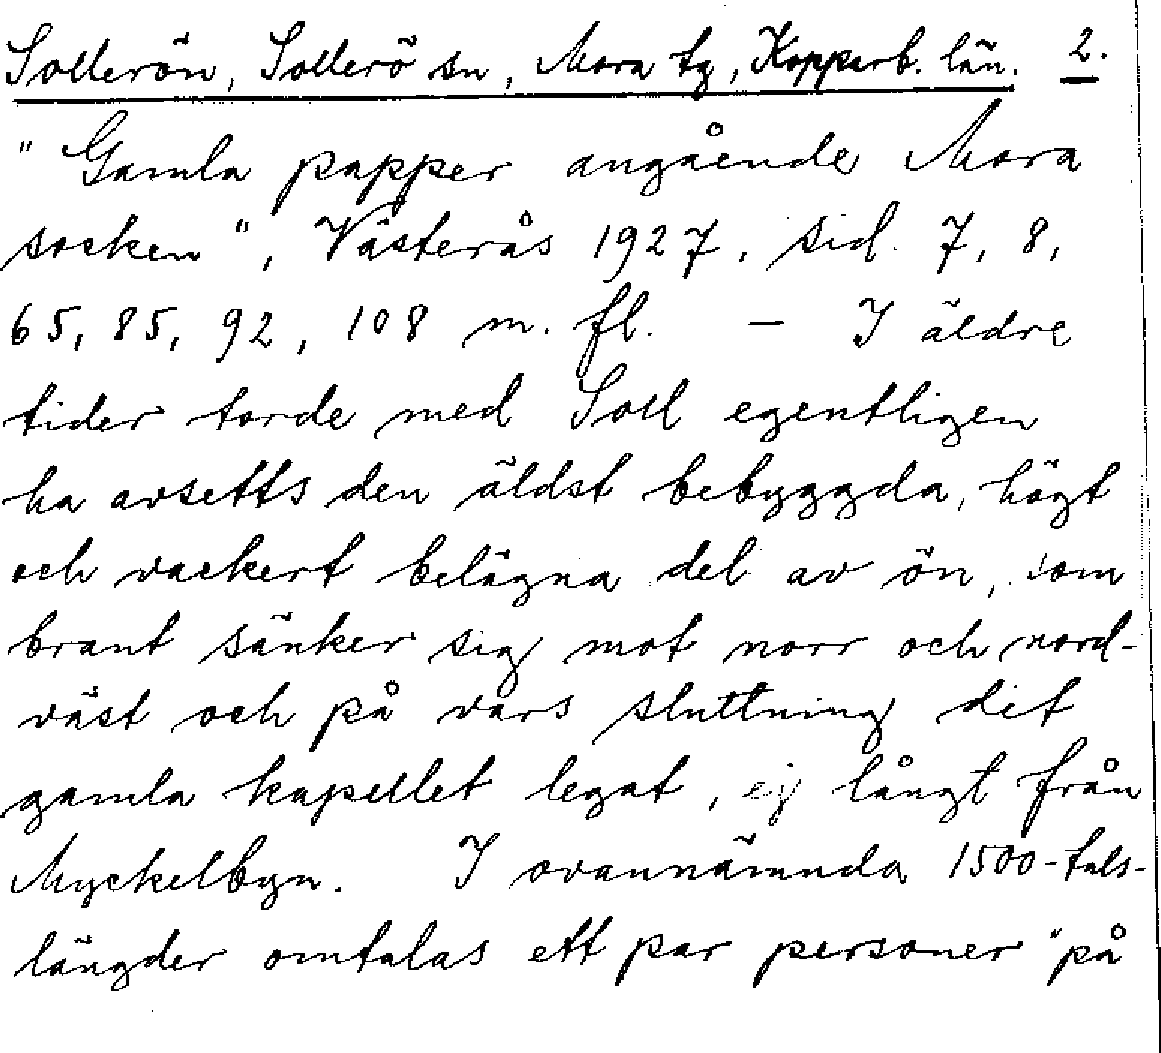 Sollerön, Sollerö sn, Mora tg, Kopparb. län. 2.
"Gamla papper angående Mora
socken", Västerås 1927, sid. 7, 8,
65, 85, 92, 108 m. fl. – I äldre
tider torde med Soll egentligen
ha avsetts den äldst bebyggda, högt
och vackert belägna del av ön, som
brant sänker sig mot norr och nord-
väst och på vars sluttning det
gamla kapellet legat, ej långt från
Myckelbyn. I ovannämnda 1500-tals-
längder omtalas ett par personer "på